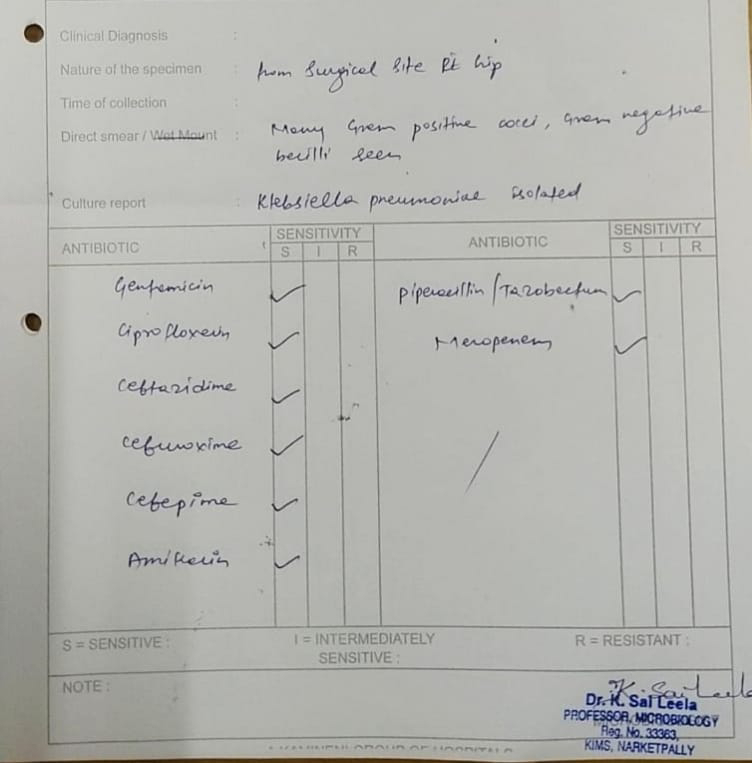 Clinical Diagnosis :
Nature of the specimen : from Surgical Site Rt hip
Time of collection :
Direct smear / Wet Mount : Many Gram positive cocci, Gram negative
bacilli seen
Culture report : Klebsiella pneumoniae isolated
ANTIBIOTIC SENSITIVITY ANTIBIOTIC SENSITIVITY
S I R S I R
Gentamicin ✓ Piperacillin/Tazobactum ✓
Ciprofloxacin ✓ Meropenem ✓
Ceftazidime ✓
Cefuroxime ✓
Cefepime ✓
Amikacin ✓
S = SENSITIVE : I = INTERMEDIATELY R = RESISTANT :
SENSITIVE :
NOTE :
K. Sai Leela
Dr. K. Sai Leela
PROFESSOR, MICROBIOLOGY
Reg. No. 33363,
KIMS, NARKETPALLY